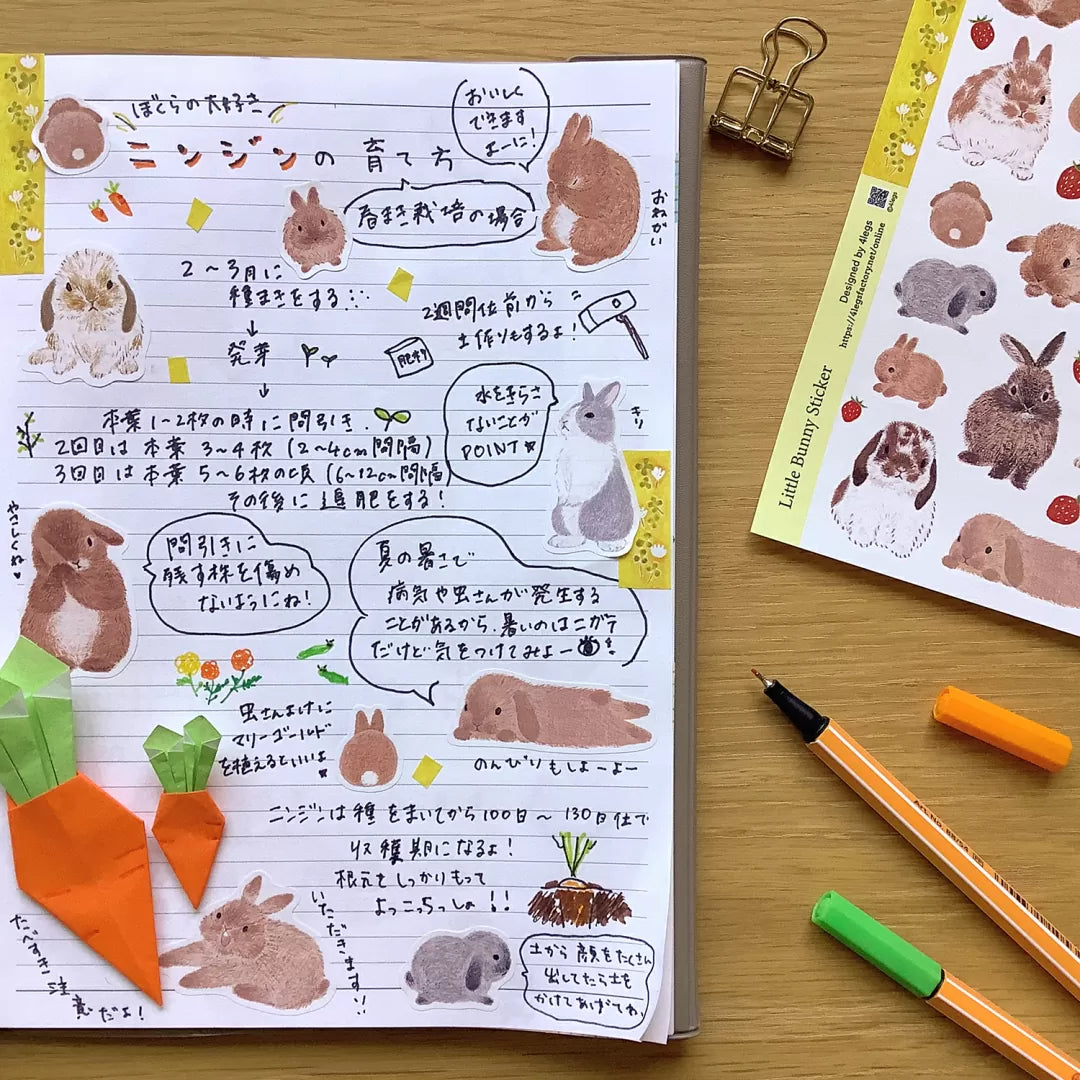 ぼくらの大好き
ニンジンの育て方
おいしく
できます
よーに!
おねがい
春まき栽培の場合
2～3月に
種まきをする…
↓
発芽
↓
2週間位前から
土作りもするよ!
肥料
本葉1～2枚の時に間引き.
2回目は本葉3～4枚(2～4cm間隔)
3回目は本葉5～6枚の頃(6～12cm間隔)
その後に追肥をする!
水をきらさ
ないことが
POINT
きり
やさしくね♥
間引きに
残す株を傷め
ないようにね!
夏の暑さで
病気や虫さんが発生する
ことがあるから、暑いのはニガテ
だけど気をつけてみよー
虫さんよけに
マリーゴールド
を植えるといいよ
のんびりもしよーよー
ニンジンは種をまいてから100日～130日位で
収穫期になるよ!
根元をしっかりもって
よっこらっしょ!!
いただきます!!
たべすぎ注意だよ!
土から顔をたくさん
出してたら土を
かけてあげてね、
Little Bunny Sticker
Designed by 4legs
https://4legsfactory.net/online
©4legs
Art.No. 88/54